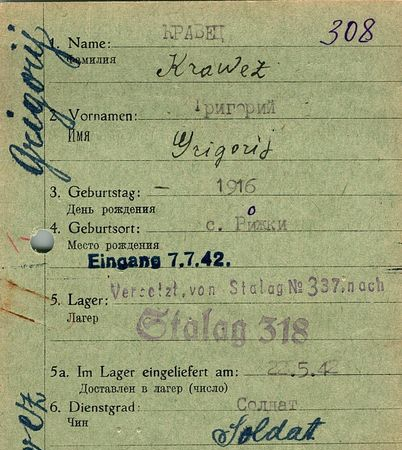 КРАВЕЦ 308
1. Name:
Фамилия
Krawez
2. Vornamen: Григорий
Имя
Grigorij
3. Geburtstag: — 1916
День рождения
4. Geburtsort: с. Рожки
Место рождения
Eingang 7.7.42.
Versetzt, von Stalag № 337, nach
5. Lager:
Лагер
Stalag 318
5a. Im Lager eingeliefert am: 5.4
Доставлен в лагер (число)
6. Dienstgrad: Солдат
Чин
Soldat
Grigorij